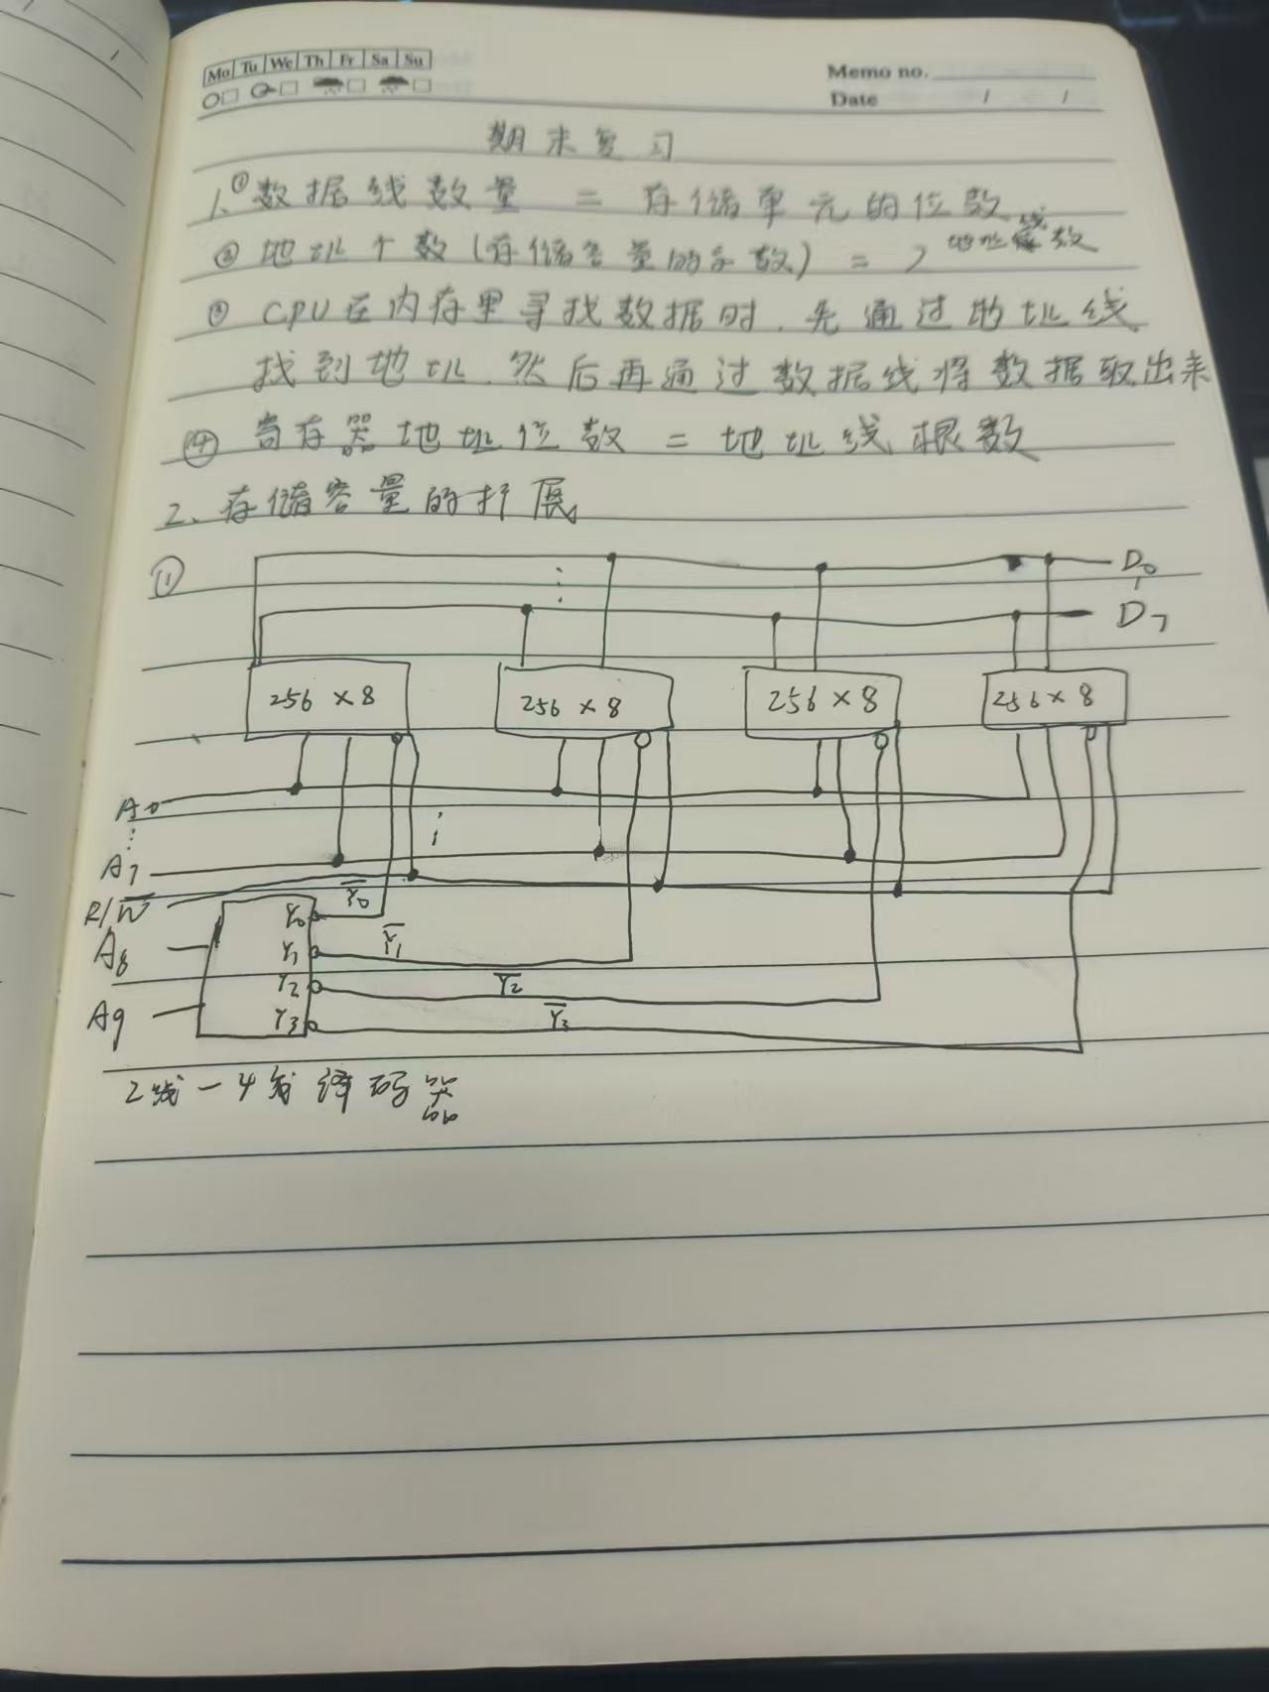 Mo Tu We Th Fr Sa Su
Memo no.
Date / /
期末复习
1、①数据线数量 = 存储单元的位数
② 地址个数(存储容量的字数) = 2地址线数
③ CPU在内存里寻找数据时,先通过地址线
找到地址,然后再通过数据线将数据取出来
④ 寄存器地址位数 = 地址线根数
2、存储容量的扩展
①
D0
D7
256 × 8 256 × 8 256 × 8 256 × 8
A0
A7
R/W̅
Y0 Y̅0
A8
Y1 Y̅1
Y2 Y̅2
A9
Y3 Y̅3
2线-4线译码器